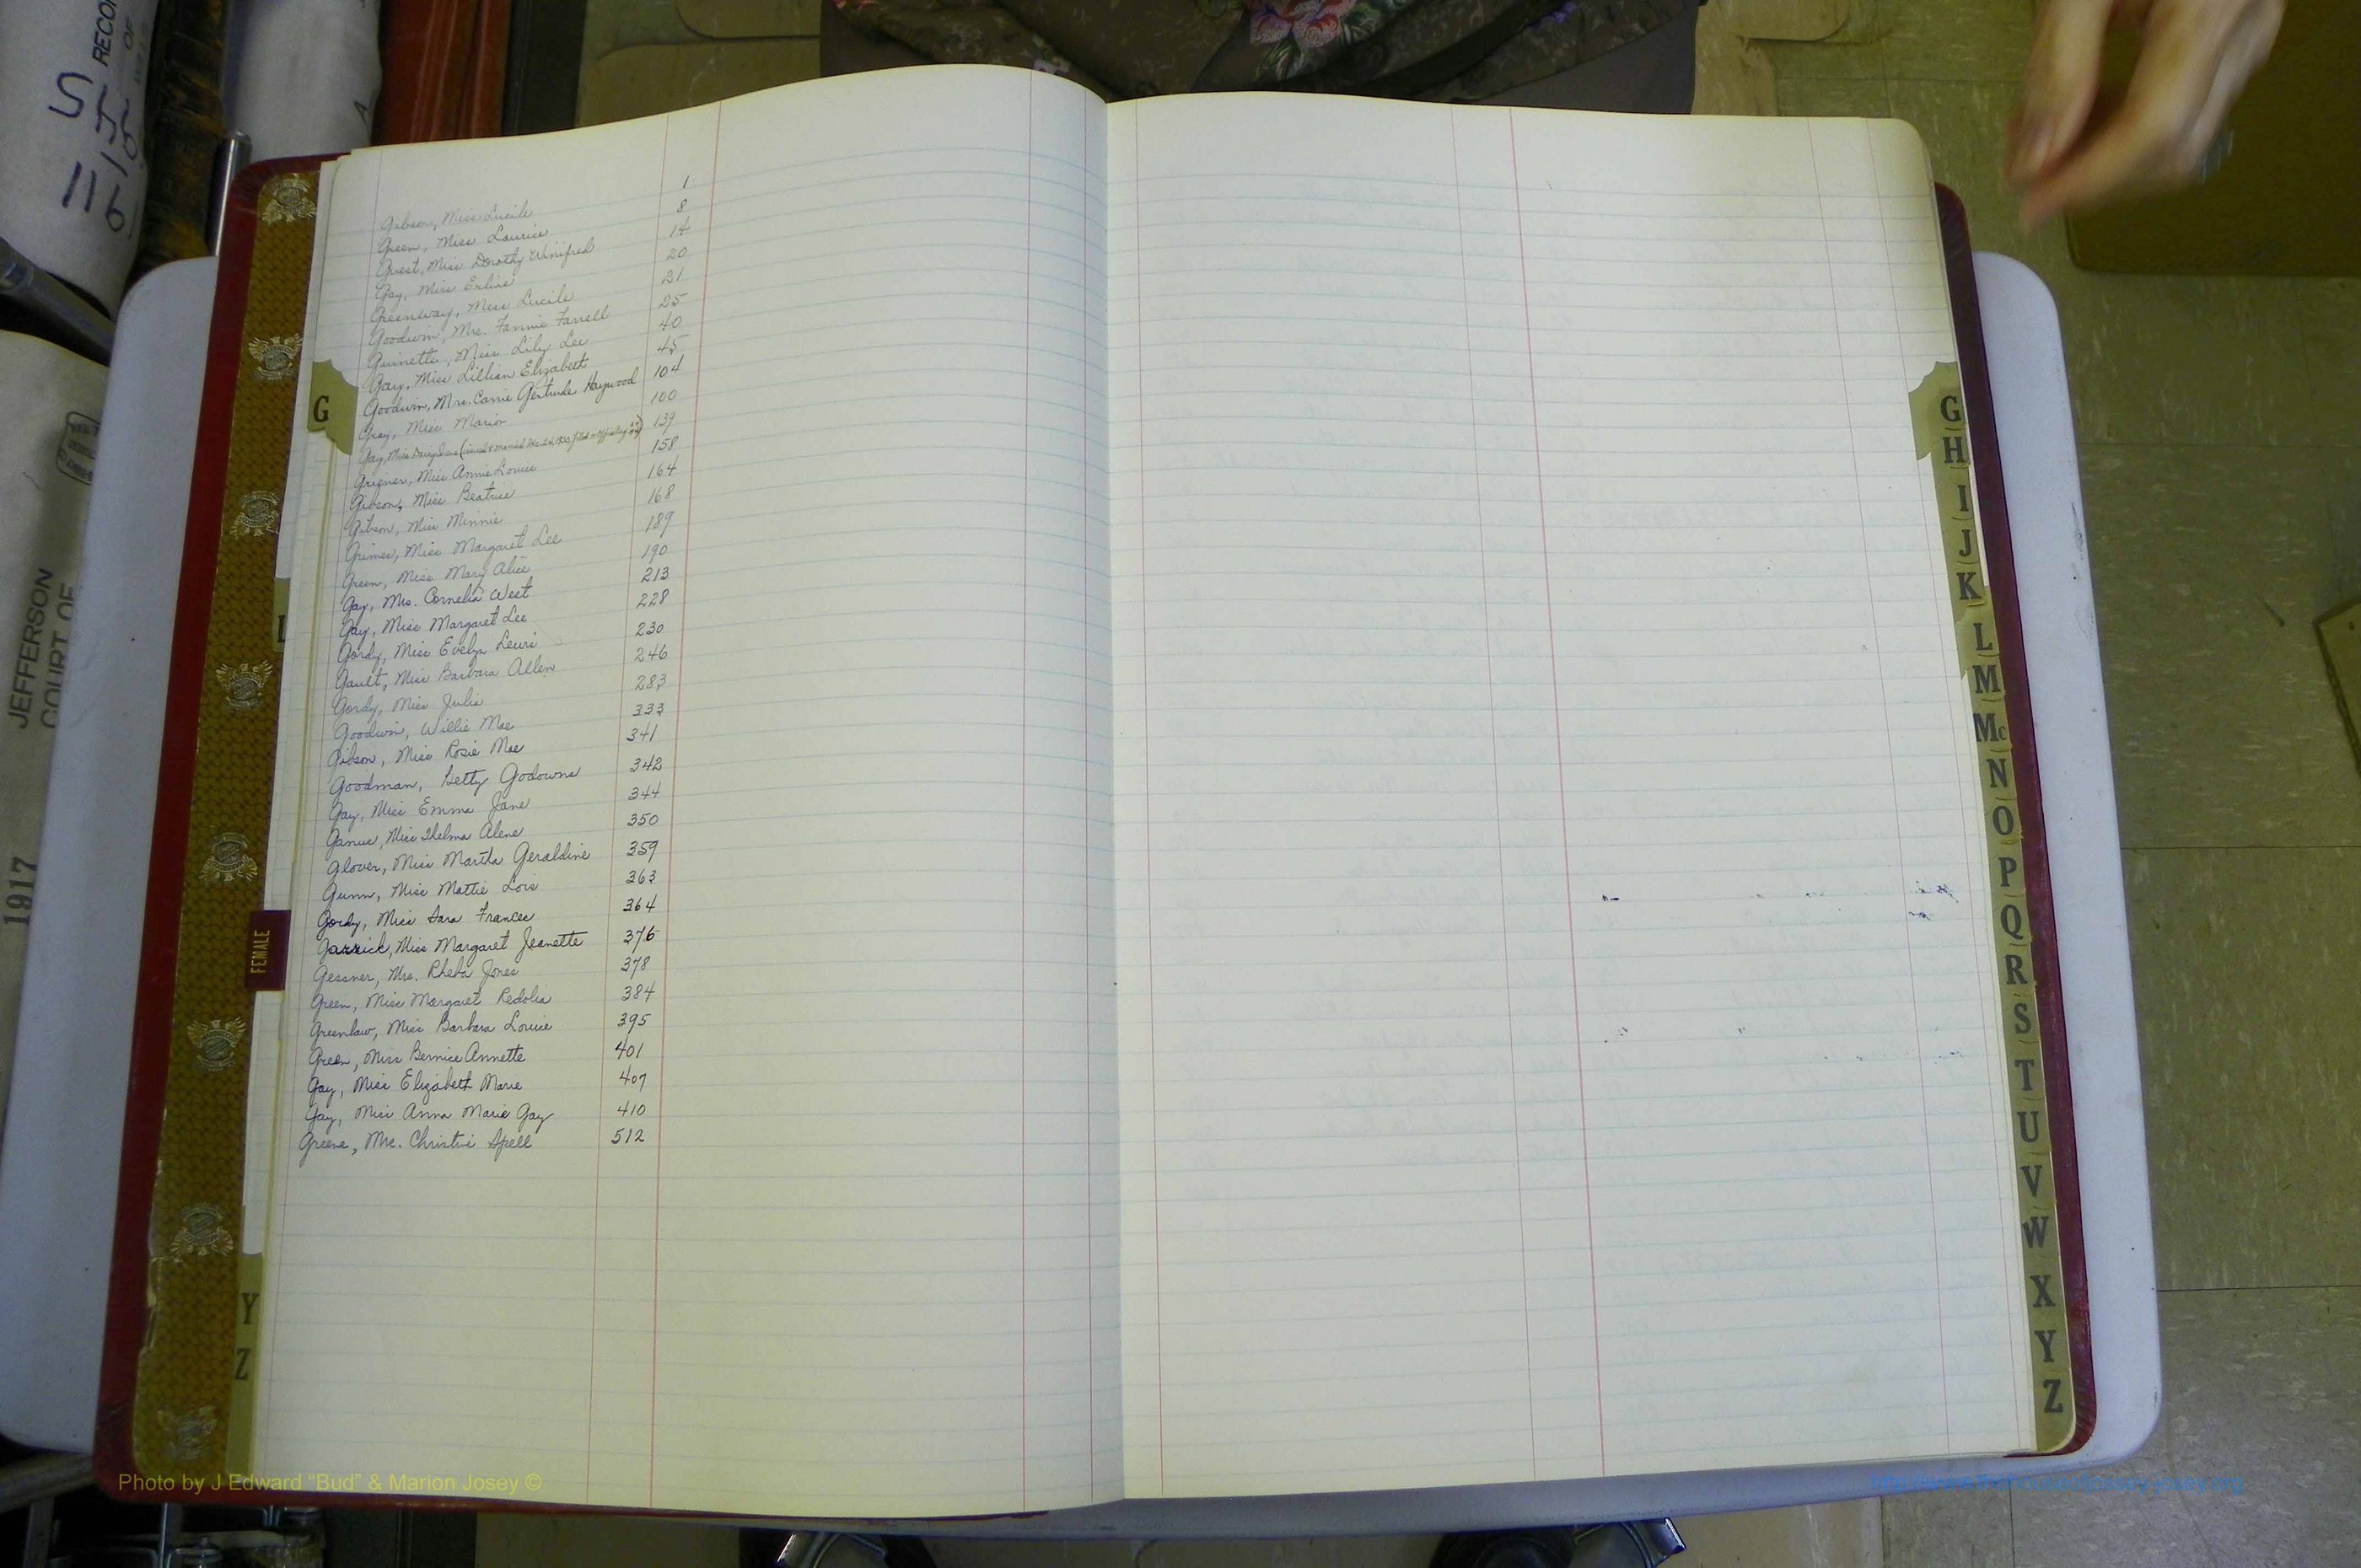 Gibson, Miss Lucile 1
Green, Miss Laurice 8
Guest, Miss Dorothy Winifred 14
Gay, Miss Erline 20
Greenway, Miss Lucile 21
Goodwin, Mrs. Fannie Farrell 25
Guinette, Miss Lily Lee 40
Gay, Miss Lillian Elizabeth 45
Goodwin, Mrs. Carrie Gertrude Haywood 104
Gray, Miss Marion 100
Gay, Miss 139
Griener, Miss Annie Louise 158
Gibson, Miss Beatrice 164
Gibson, Miss Minnie 168
Grimes, Miss Margaret Lee 189
Green, Miss Mary Alice 190
Gay, Mrs. Cornelia West 213
Gay, Miss Margaret Lee 228
Gordy, Miss Evelyn Lewis 230
Gault, Miss Barbara Allen 246
Gordy, Miss Julia 283
Goodwin, Willie Mae 333
Gibson, Miss Rosie Mae 341
Goodman, Betty Godowns 342
Gay, Miss Emma Jane 344
Ganus, Miss Thelma Alene 350
Glover, Miss Martha Geraldine 359
Gunn, Miss Mattie Lois 363
Gordy, Miss Sara Frances 364
Garrick, Miss Margaret Jeanette 376
Gessner, Mrs. Rheba Jones 378
Green, Miss Margaret Redolia 384
Greenlaw, Miss Barbara Louise 395
Green, Miss Bernice Annette 401
Gay, Miss Elizabeth Marie 407
Gay, Miss Anna Marie Gay 410
Greene, Mrs. Christine Spell 512
G
L
FEMALE
Y
Z
G
H
I
J
K
L
M
Mc
N
O
P
Q
R
S
T
U
V
W
X
Y
Z
JEFFERSON
COURT OF
1917
Photo by J Edward "Bud" & Marion Josey ©